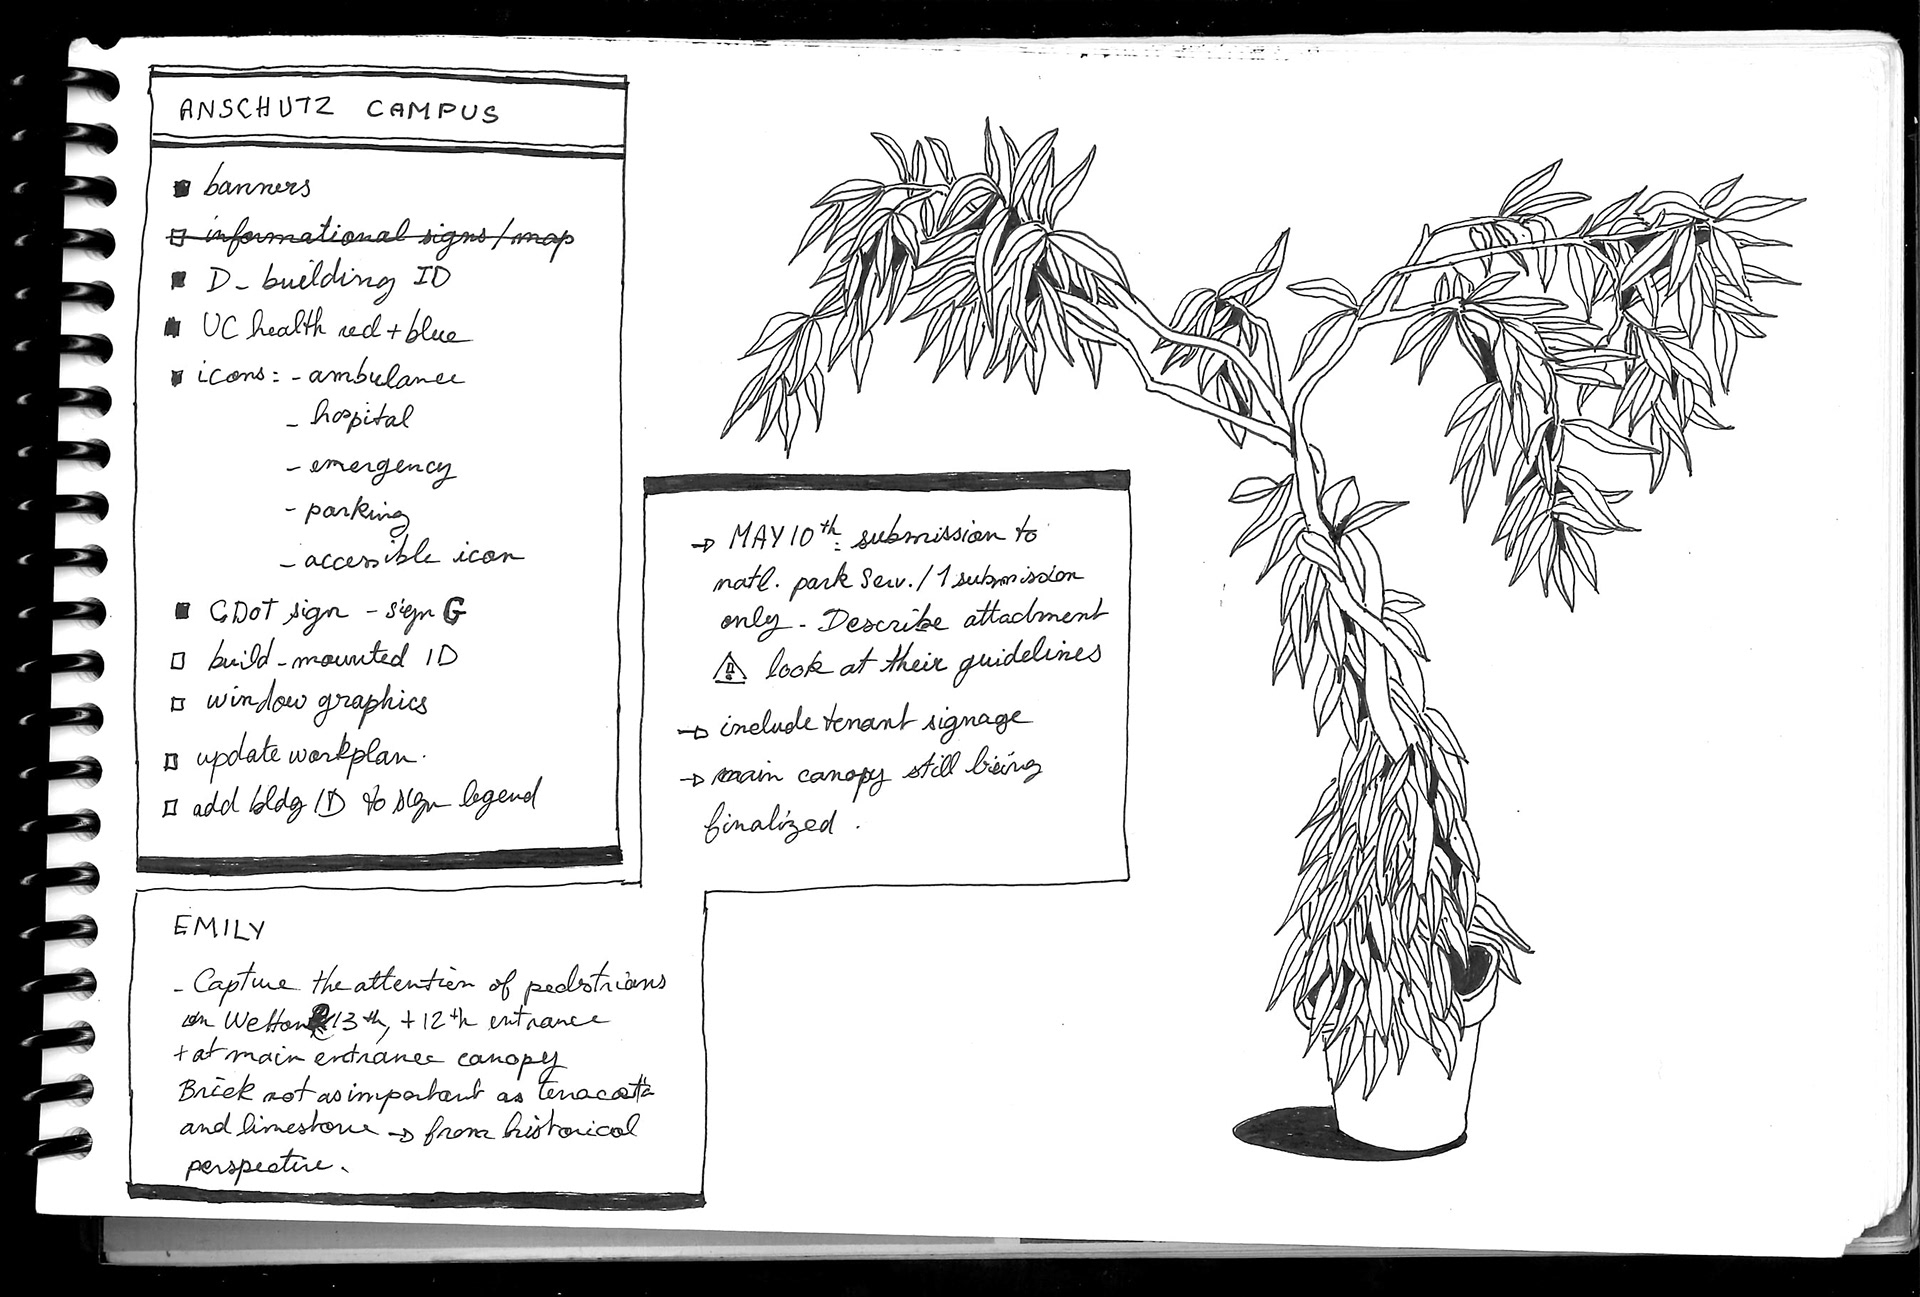 ANSCHUTZ CAMPUS
banners
informational signs/map
D- building ID
UC health red + blue
icons: - ambulance
- hospital
- emergency
- parking
- accessible icon
CDOT sign - sign G
build-mounted ID
window graphics
update workplan.
add bldg ID to sign legend
→ MAY 10th: submission to
natl. park Serv. / 1 submission
only - Describe attachment
look at their guidelines
→ include tenant signage
→ main canopy still being
finalized.
EMILY
- Capture the attention of pedestrians
on 13th, + 12th entrance
+ at main entrance canopy
Brick not as important as terracotta
and limestone → from historical
perspective.